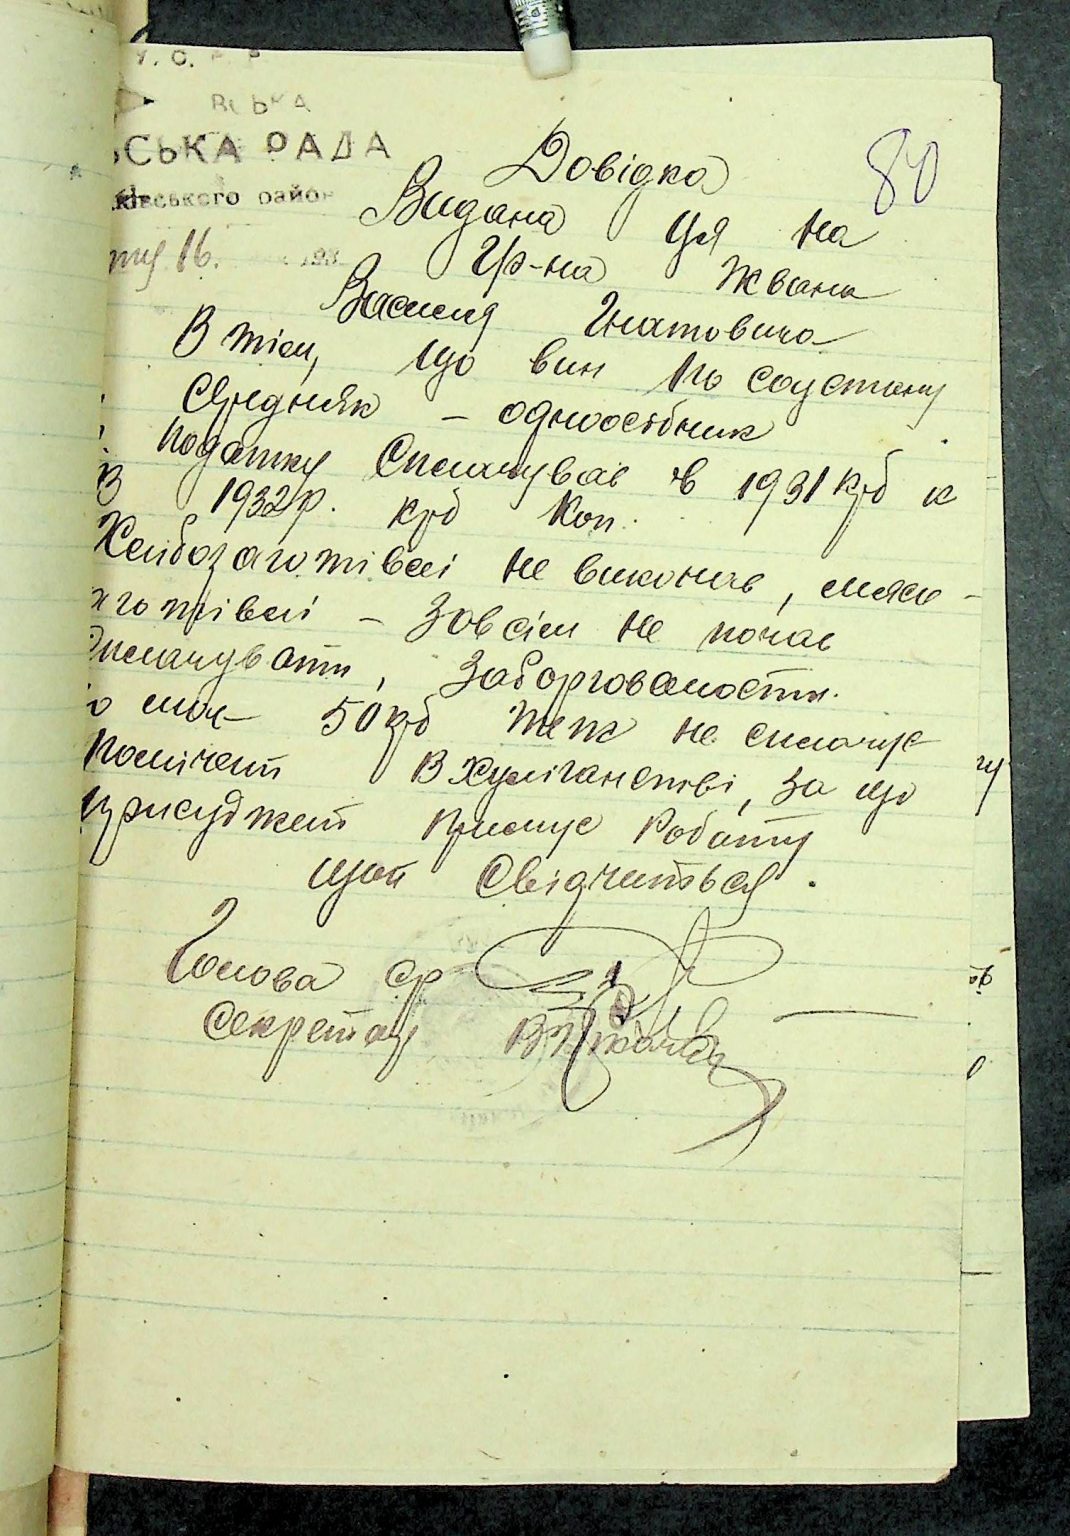 У. С. Р. Р
ВСЬКА
ЬСЬКА РАДА
ківського район
16. 193
80
Довідка
Видана ця на
Гр-на Жвана
Василя Гнатовича
В тім, що вин по соцстану
Середняк – одноосібник
податку Сплачував в 1931 крб к
В 1932р. крб Коп.
Хлібозаготівлі не виконав, мясо-
аготівлі – Зовсім не почав
Сплачувати, Заборгованости
50 крб теж не сплачує
Помічен В Хуліганстві, за що
присуджен примус Роботу
що й Свідчиться.
Голова ср
Секретар